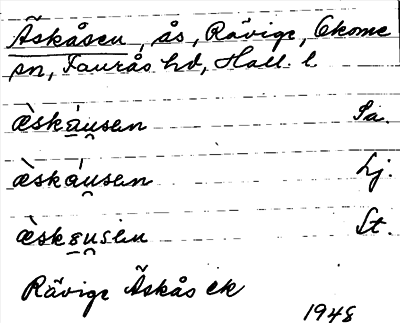 Äskåsen, ås, Rävige, Ekome
sn, Faurås hd, Hall. l
æ̀skáu̯sen Sa.
æ̀skáu̯sen Lj.
æ̀skau̯sen St.
Rävige Äskås ek
1948